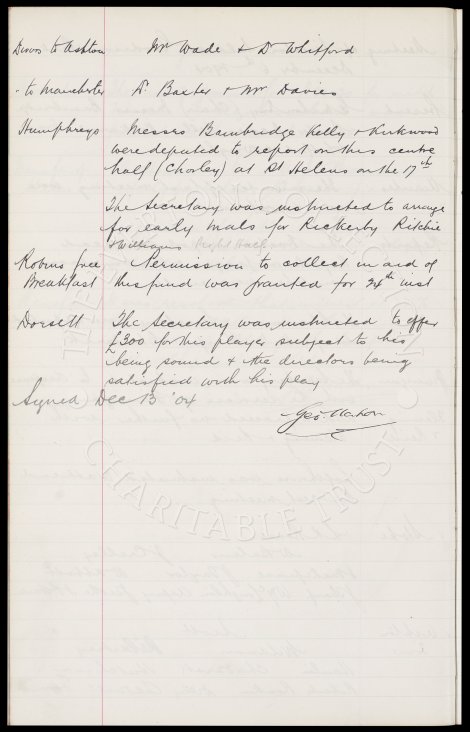 Direcs to Ashton Mr Wade & Dr Whitford
" to Manchester Dr Baxter & Mr Davies
Humphreys Messrs Bainbridge Kelly & Kirkwood
were deputed to report on this centre
half (Chorley) at St Helens on the 17th
The Secretary was instructed to arrange
for early trials for Rickerby Ritchie
& Williams Right Back
Robins free Permission to collect in aid of
Breakfast this fund was granted for 24th inst
Dorsett The Secretary was instructed to offer
£300 for this player subject to his
being sound & the directors being
satisfied with his play
Signed Dec 13 '04
Geo. Mahon
CHARITABLE TRUST